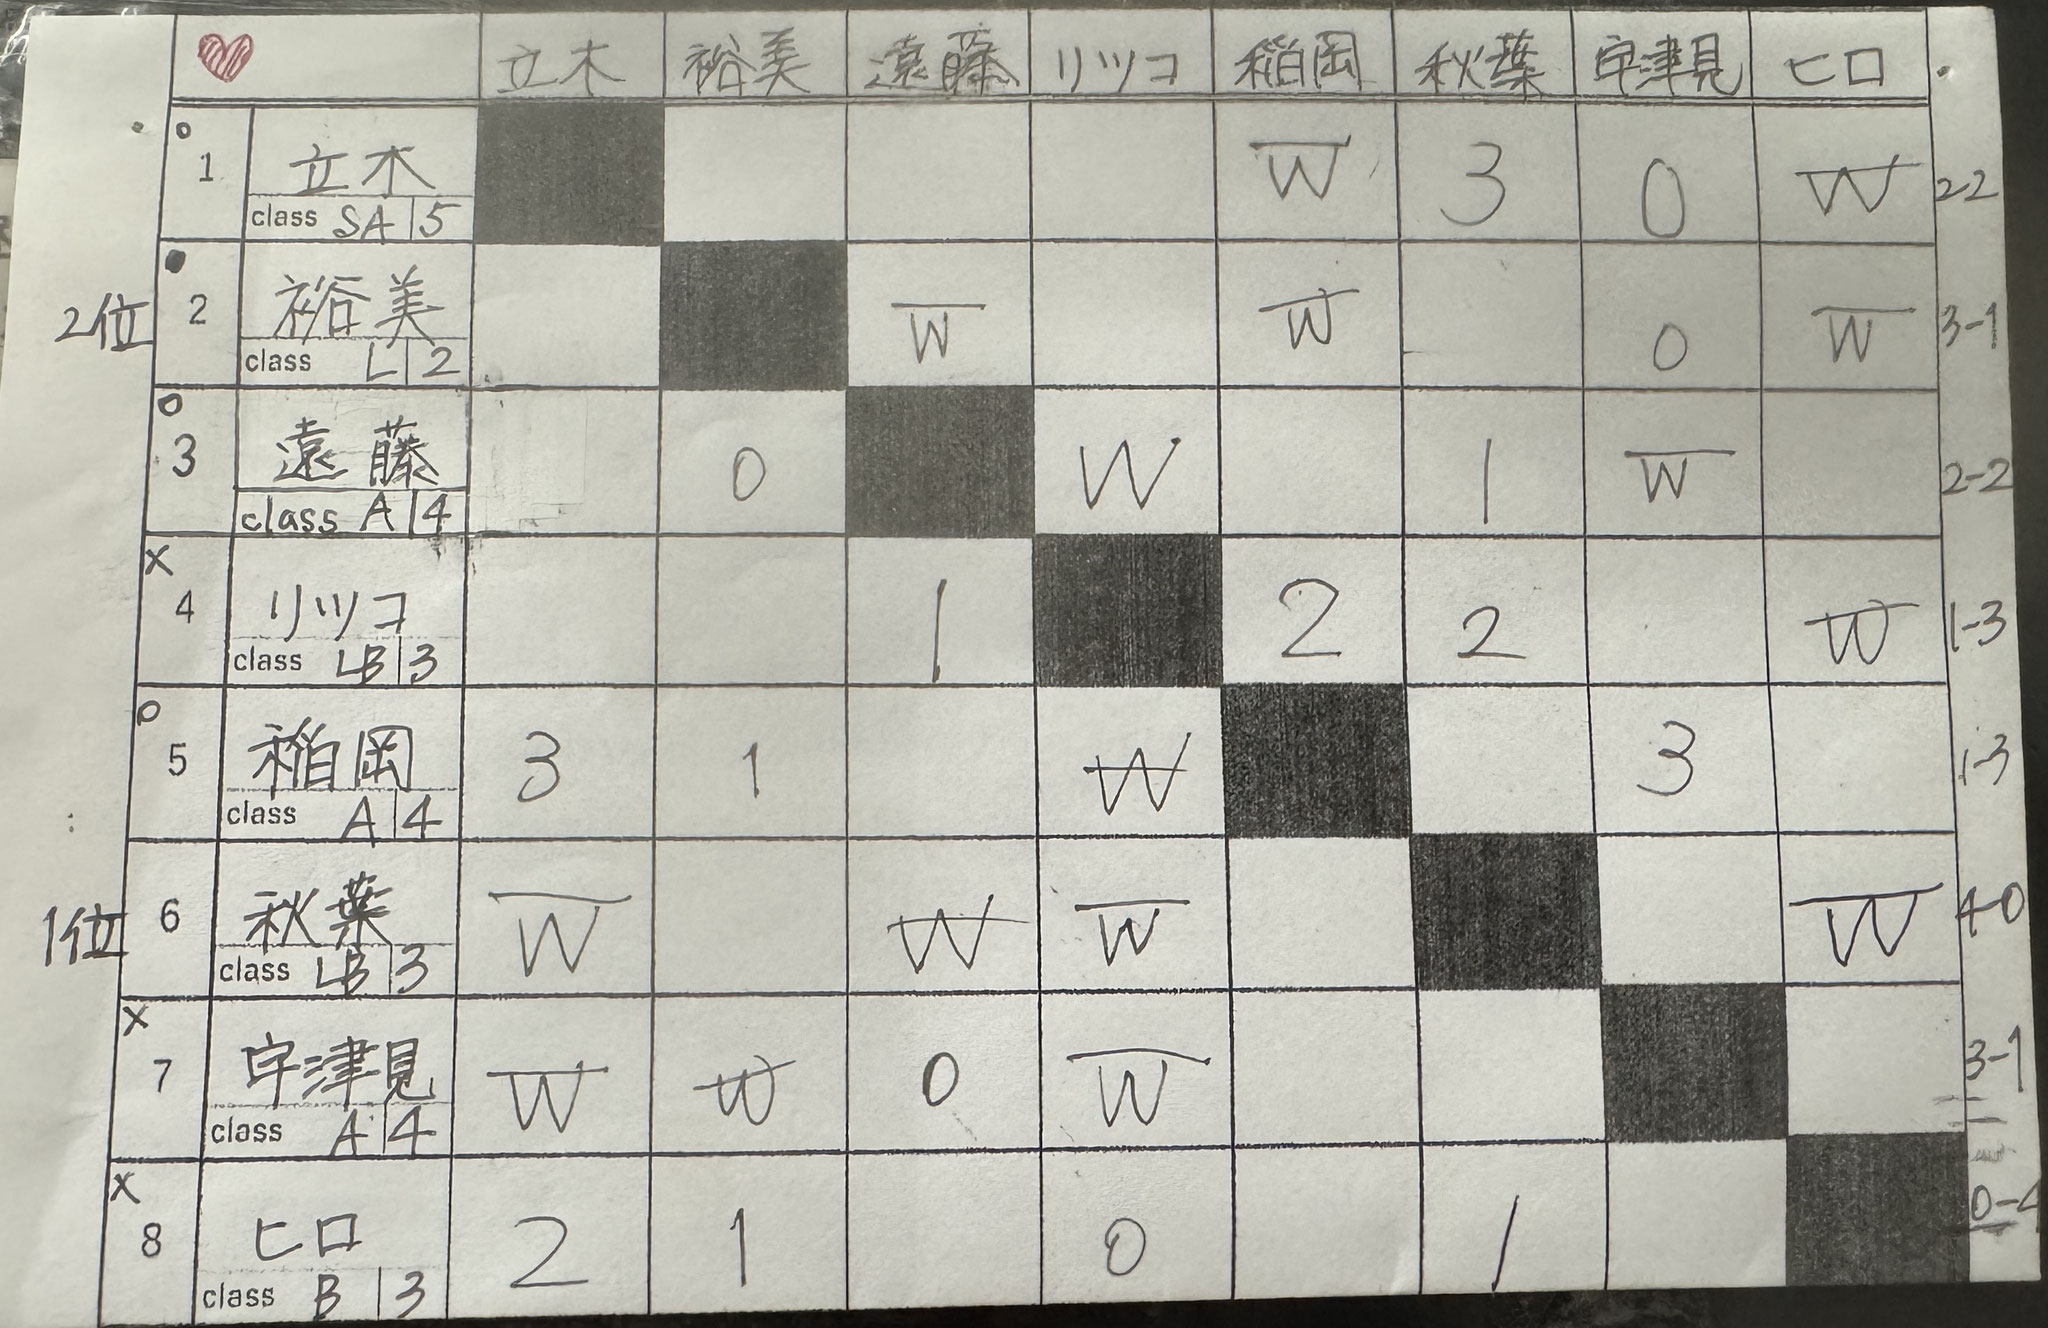 立木 裕美 遠藤 リツコ 稲岡 秋葉 宇津見 ヒロ
1 立木 W 3 0 W 2-2
class SA 5
2位 2 裕美 W W 0 W 3-1
class L 2
3 遠藤 0 W 1 W 2-2
class A 4
x
4 リツコ 1 2 2 W 1-3
class LB 3
5 稲岡 3 1 W 3 1-3
class A 4
1位 6 秋葉 W W W W 4-0
class LB 3
x
7 宇津見 W W 0 W 3-1
class A 4
x
8 ヒロ 2 1 0 1 0-4
class B 3